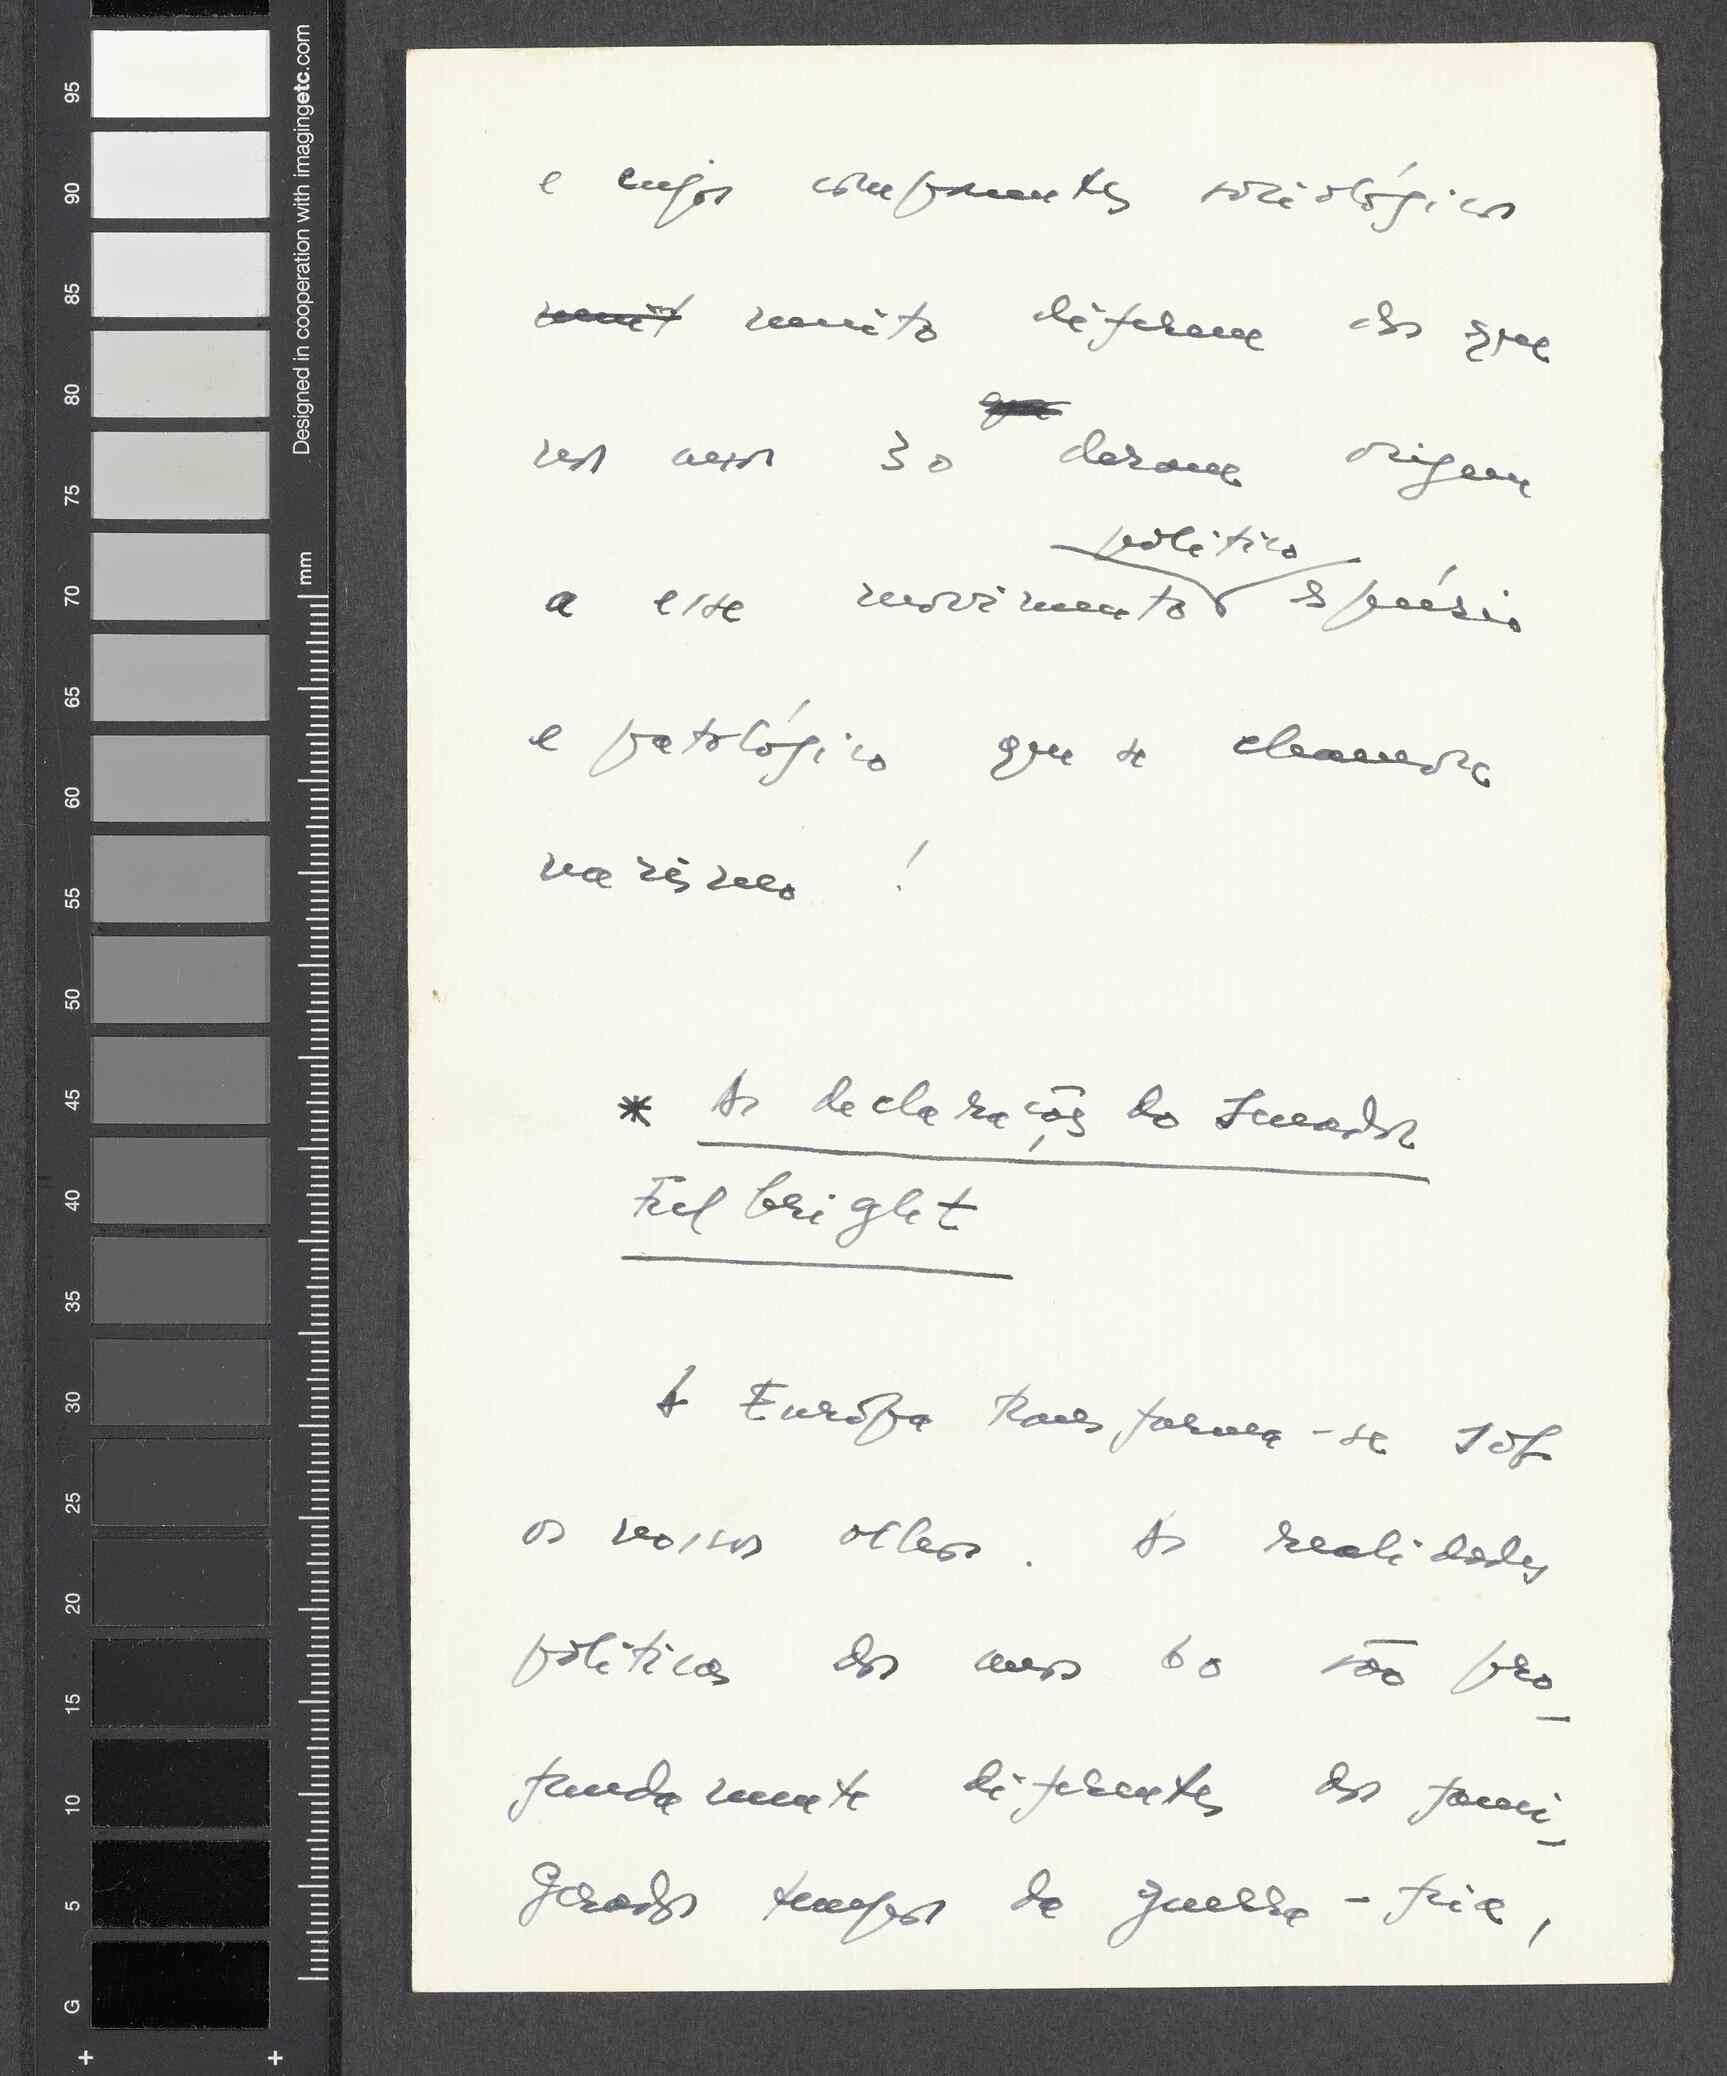 e cujos componentes sociológicos
muit muito diferem dos que
nos anos 30 deram origem
político
a esse movimento espúrio
e patológico que se chamou
nazismo !
* As declarações do Senador
Fulbright
A Európa transforma-se sob
os nossos olhos. As realidades
políticas dos anos 60 são pro-
fundamente diferentes dos fami-
gerados tempos da guerra-fria,
95
90
85
80
75
70
65
60
55
50
45
40
35
30
25
20
15
10
5
G
Designed in cooperation with imagingetc.com
mm